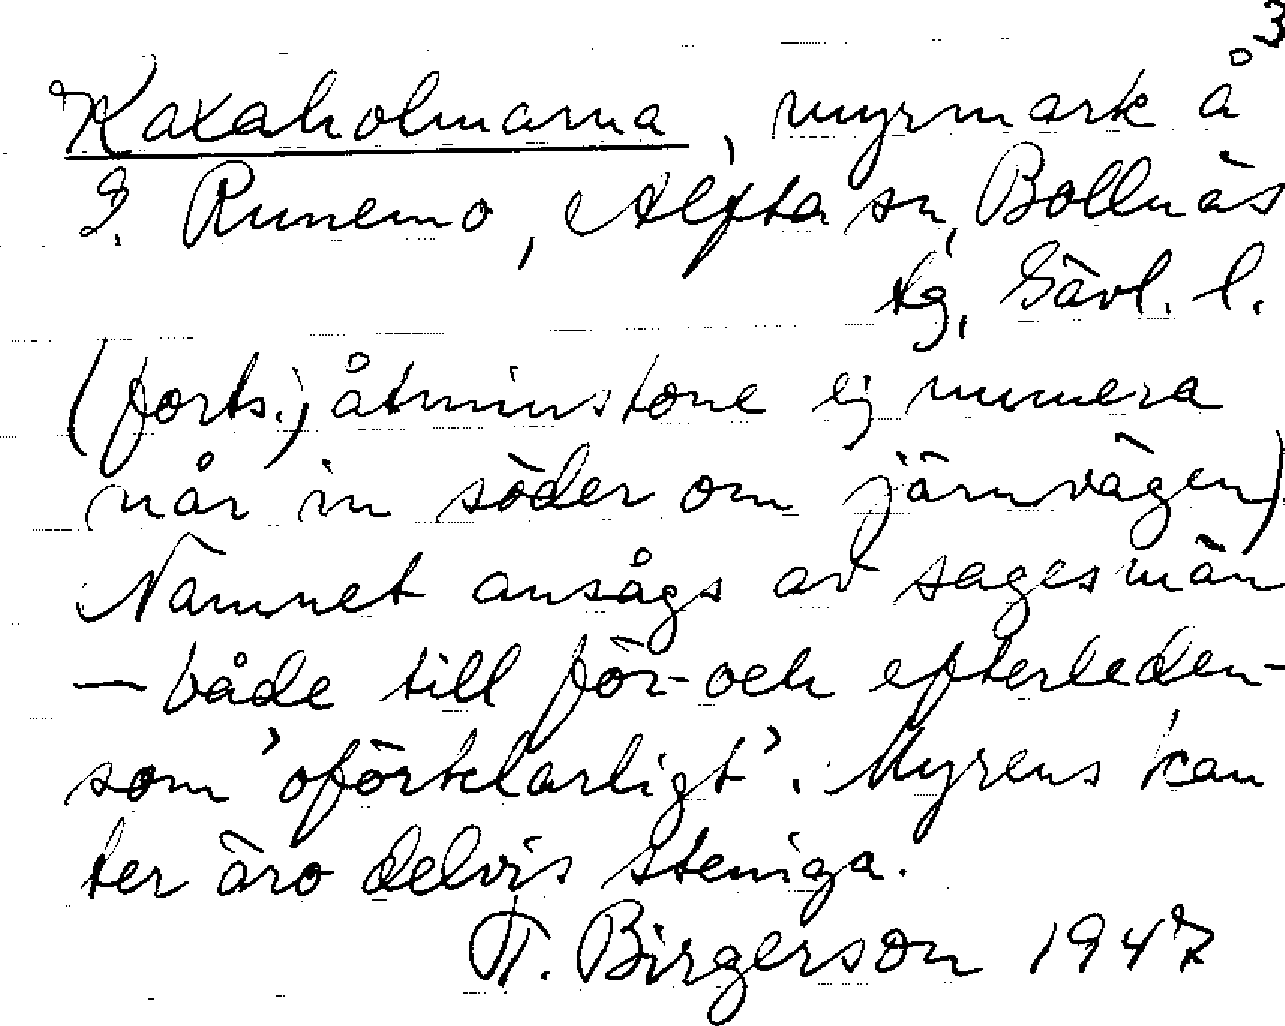 3
Kaxaholmarna, myrmark å
I. Runemo, Alfta sn, Bollnäs
tg, Gävl. l.
(forts.) åtminstone ej numera
når in söder om järnvägen)
Namnet ansågs av sagesmän
— både till för- och efterleden -
som 'oförklarligt'. Myrens kan
ter äro delvis steniga.
T. Birgerson 1947